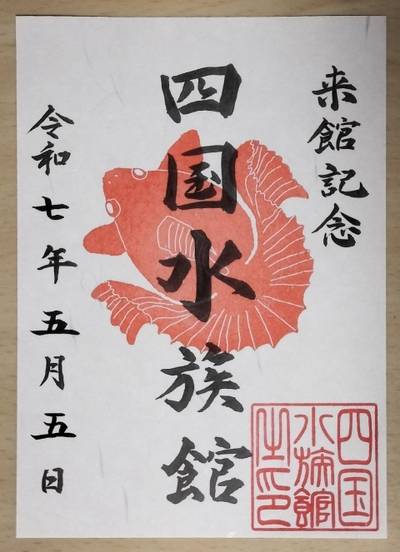 来館記念
四国水族館
令和七年五月五日
四国
水族館
之印